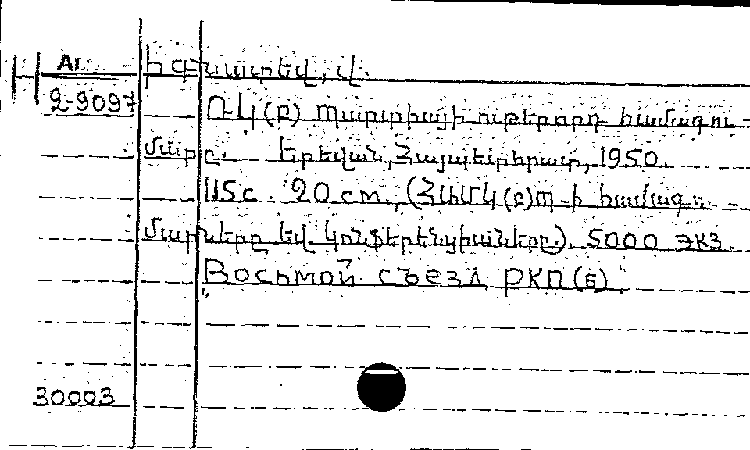 Ar Իգնատեվ, Վ.
2-9097 ՌԿ(բ) Պարտիայի ութերորդ համագու-
մարը. Երեվան, Հայպետհրատ, 1950.
115c. 20 cm., (ՀամԿ(բ)Պ-ի համագու-
մարները եվ կոնֆերենցիաները). 5000 экз.
Восьмой съезд РКП(б).
30003